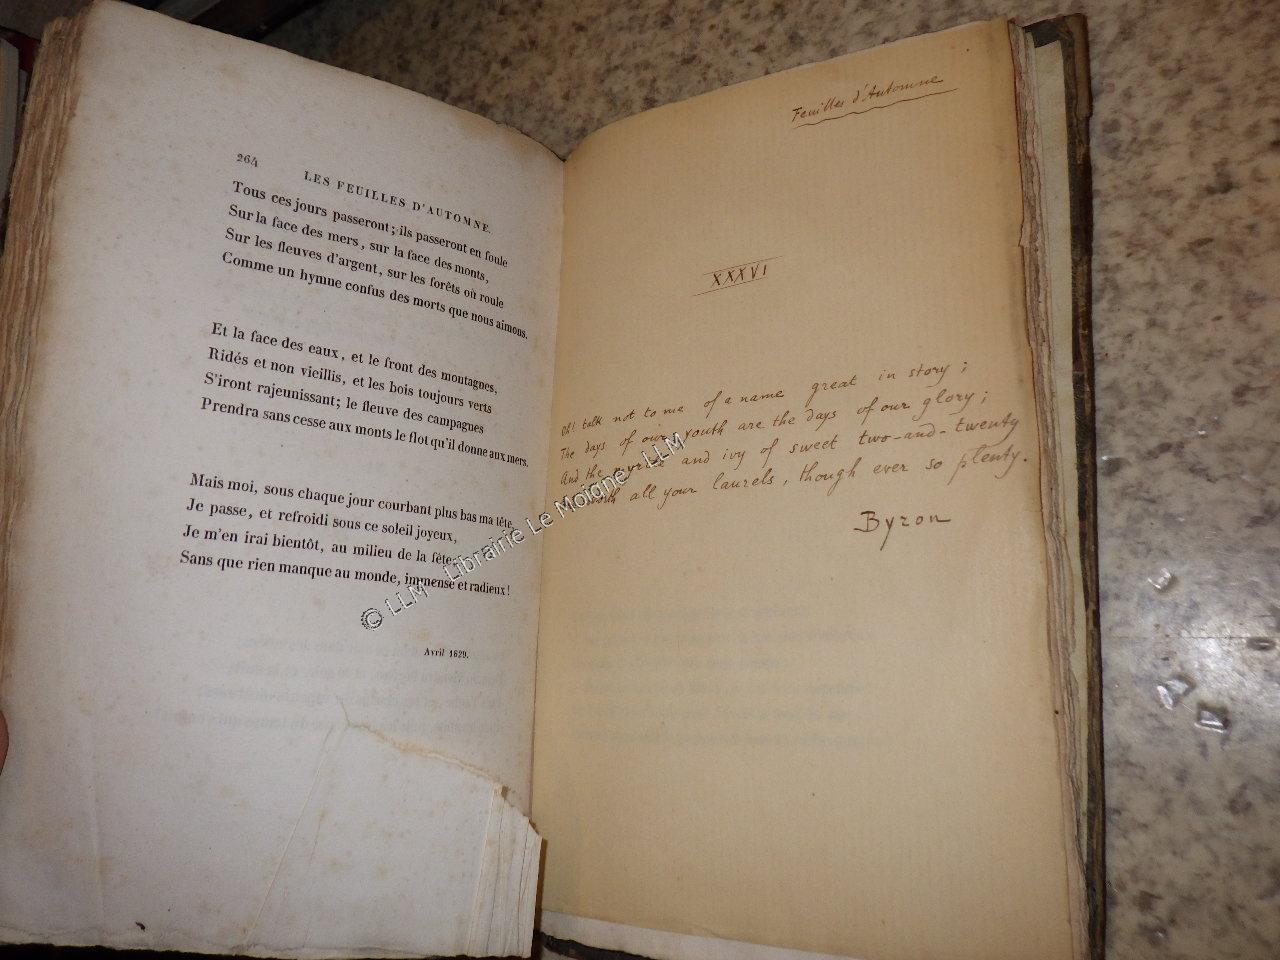 264
LES FEUILLES D'AUTOMNE.
Tous ces jours passeront; ils passeront en foule
Sur la face des mers, sur la face des monts,
Sur les fleuves d'argent, sur les forêts où roule
Comme un hymne confus des morts que nous aimons.
Et la face des eaux, et le front des montagnes,
Ridés et non vieillis, et les bois toujours verts
S'iront rajeunissant; le fleuve des campagnes
Prendra sans cesse aux monts le flot qu'il donne aux mers.
Mais moi, sous chaque jour courbant plus bas ma tête,
Je passe, et refroidi sous ce soleil joyeux,
Je m'en irai bientôt, au milieu de la fête,
Sans que rien manque au monde, immense et radieux!
Avril 1829.
Feuilles d'Automne
XXXVI
Oh! talk not to me of a name great in story;
The days of our youth are the days of our glory;
And the myrtle and ivy of sweet two-and-twenty
worth all your laurels, though ever so plenty.
Byron
© LLM - Librairie Le Moigne - LLM